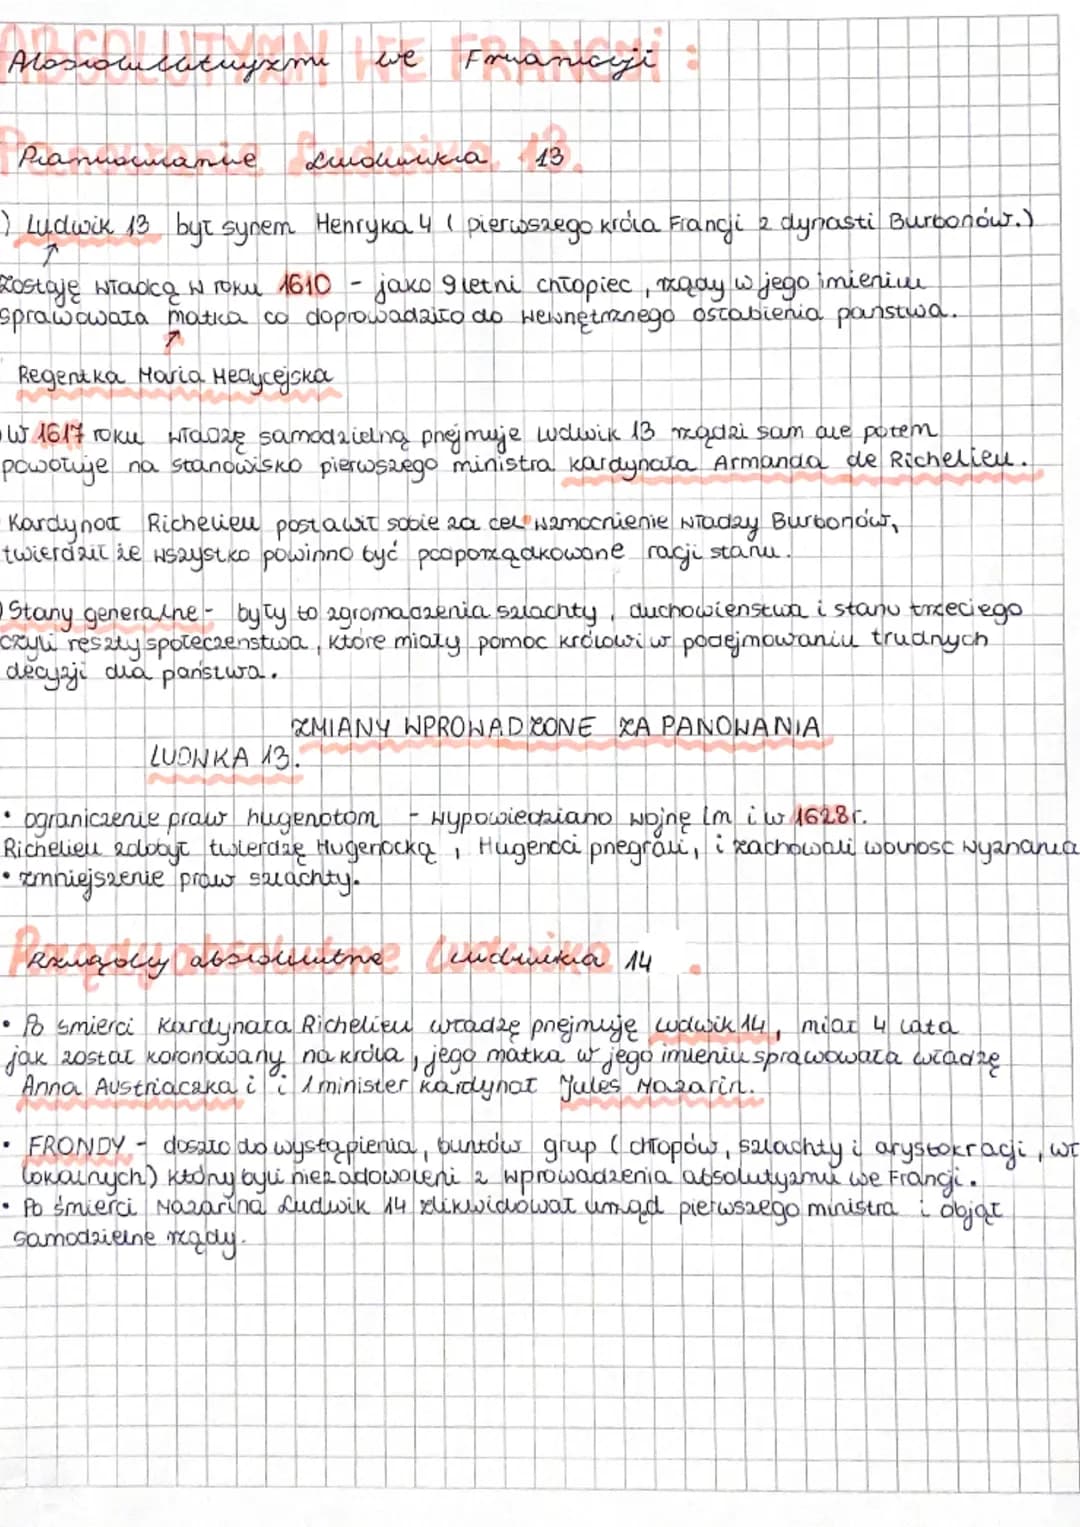 Absolutuyzm we Francji :
Panowanie Ludwika 13.
) Ludwik 13 był synem Henryka 4 ( pierwszego króla Francji z dynasti Burbonów.)
Zostaję władcą w roku 1610 - jako 9 letni chłopiec, rządy w jego imieniu
sprawowała matka co doprowadziło do wewnętrznego osłabienia państwa.
Regentka Maria Medycejska
W 1617 roku władzę samodzielną przejmuje Ludwik 13 rządzi sam ale potem
powołuje na stanowisko pierwszego ministra kardynała Armanda de Richelieu.
Kardynał Richelieu postawił sobie za cel wzmocnienie władzy Burbonów,
twierdził że wszystko powinno być podporządkowane racji stanu.
) Stany generalne - były to zgromadzenia szlachty, duchowieństwa i stanu trzeciego
czyli reszty społeczenstwa, które miały pomoc królowi w podejmowaniu trudnych
decyzji dla państwa.
ZMIANY WPROWADZONE ZA PANOWANIA
LUDWKA 13.
• ograniczenie praw hugenotom - wypowiedziano wojnę im i w 1628r.
Richelieu zdobył twierdzę Hugenocką, Hugenoci przegrali, i zachowali wolnosc wyznania
• zmniejszenie praw szlachty.
Rządy absolutne Ludwika 14.
• Po smierci Kardynała Richelieu władzę przejmuję Ludwik 14, miał 4 lata
jak został koronowany na króla, jego matka w jego imieniu sprawowała władzę
Anna Austriaczka i i 1 minister kardynał Jules Mazarin.
• FRONDY - doszło do wystąpienia, buntów grup ( chłopów, szlachty i arystokracji, wł
lokalnych) którzy byli niezadowoleni z wprowadzenia absolutyzmu we Francji.
• Po śmierci Mazarina Ludwik 14 zlikwidował urząd pierwszego ministra i objął
samodzielne rządy.